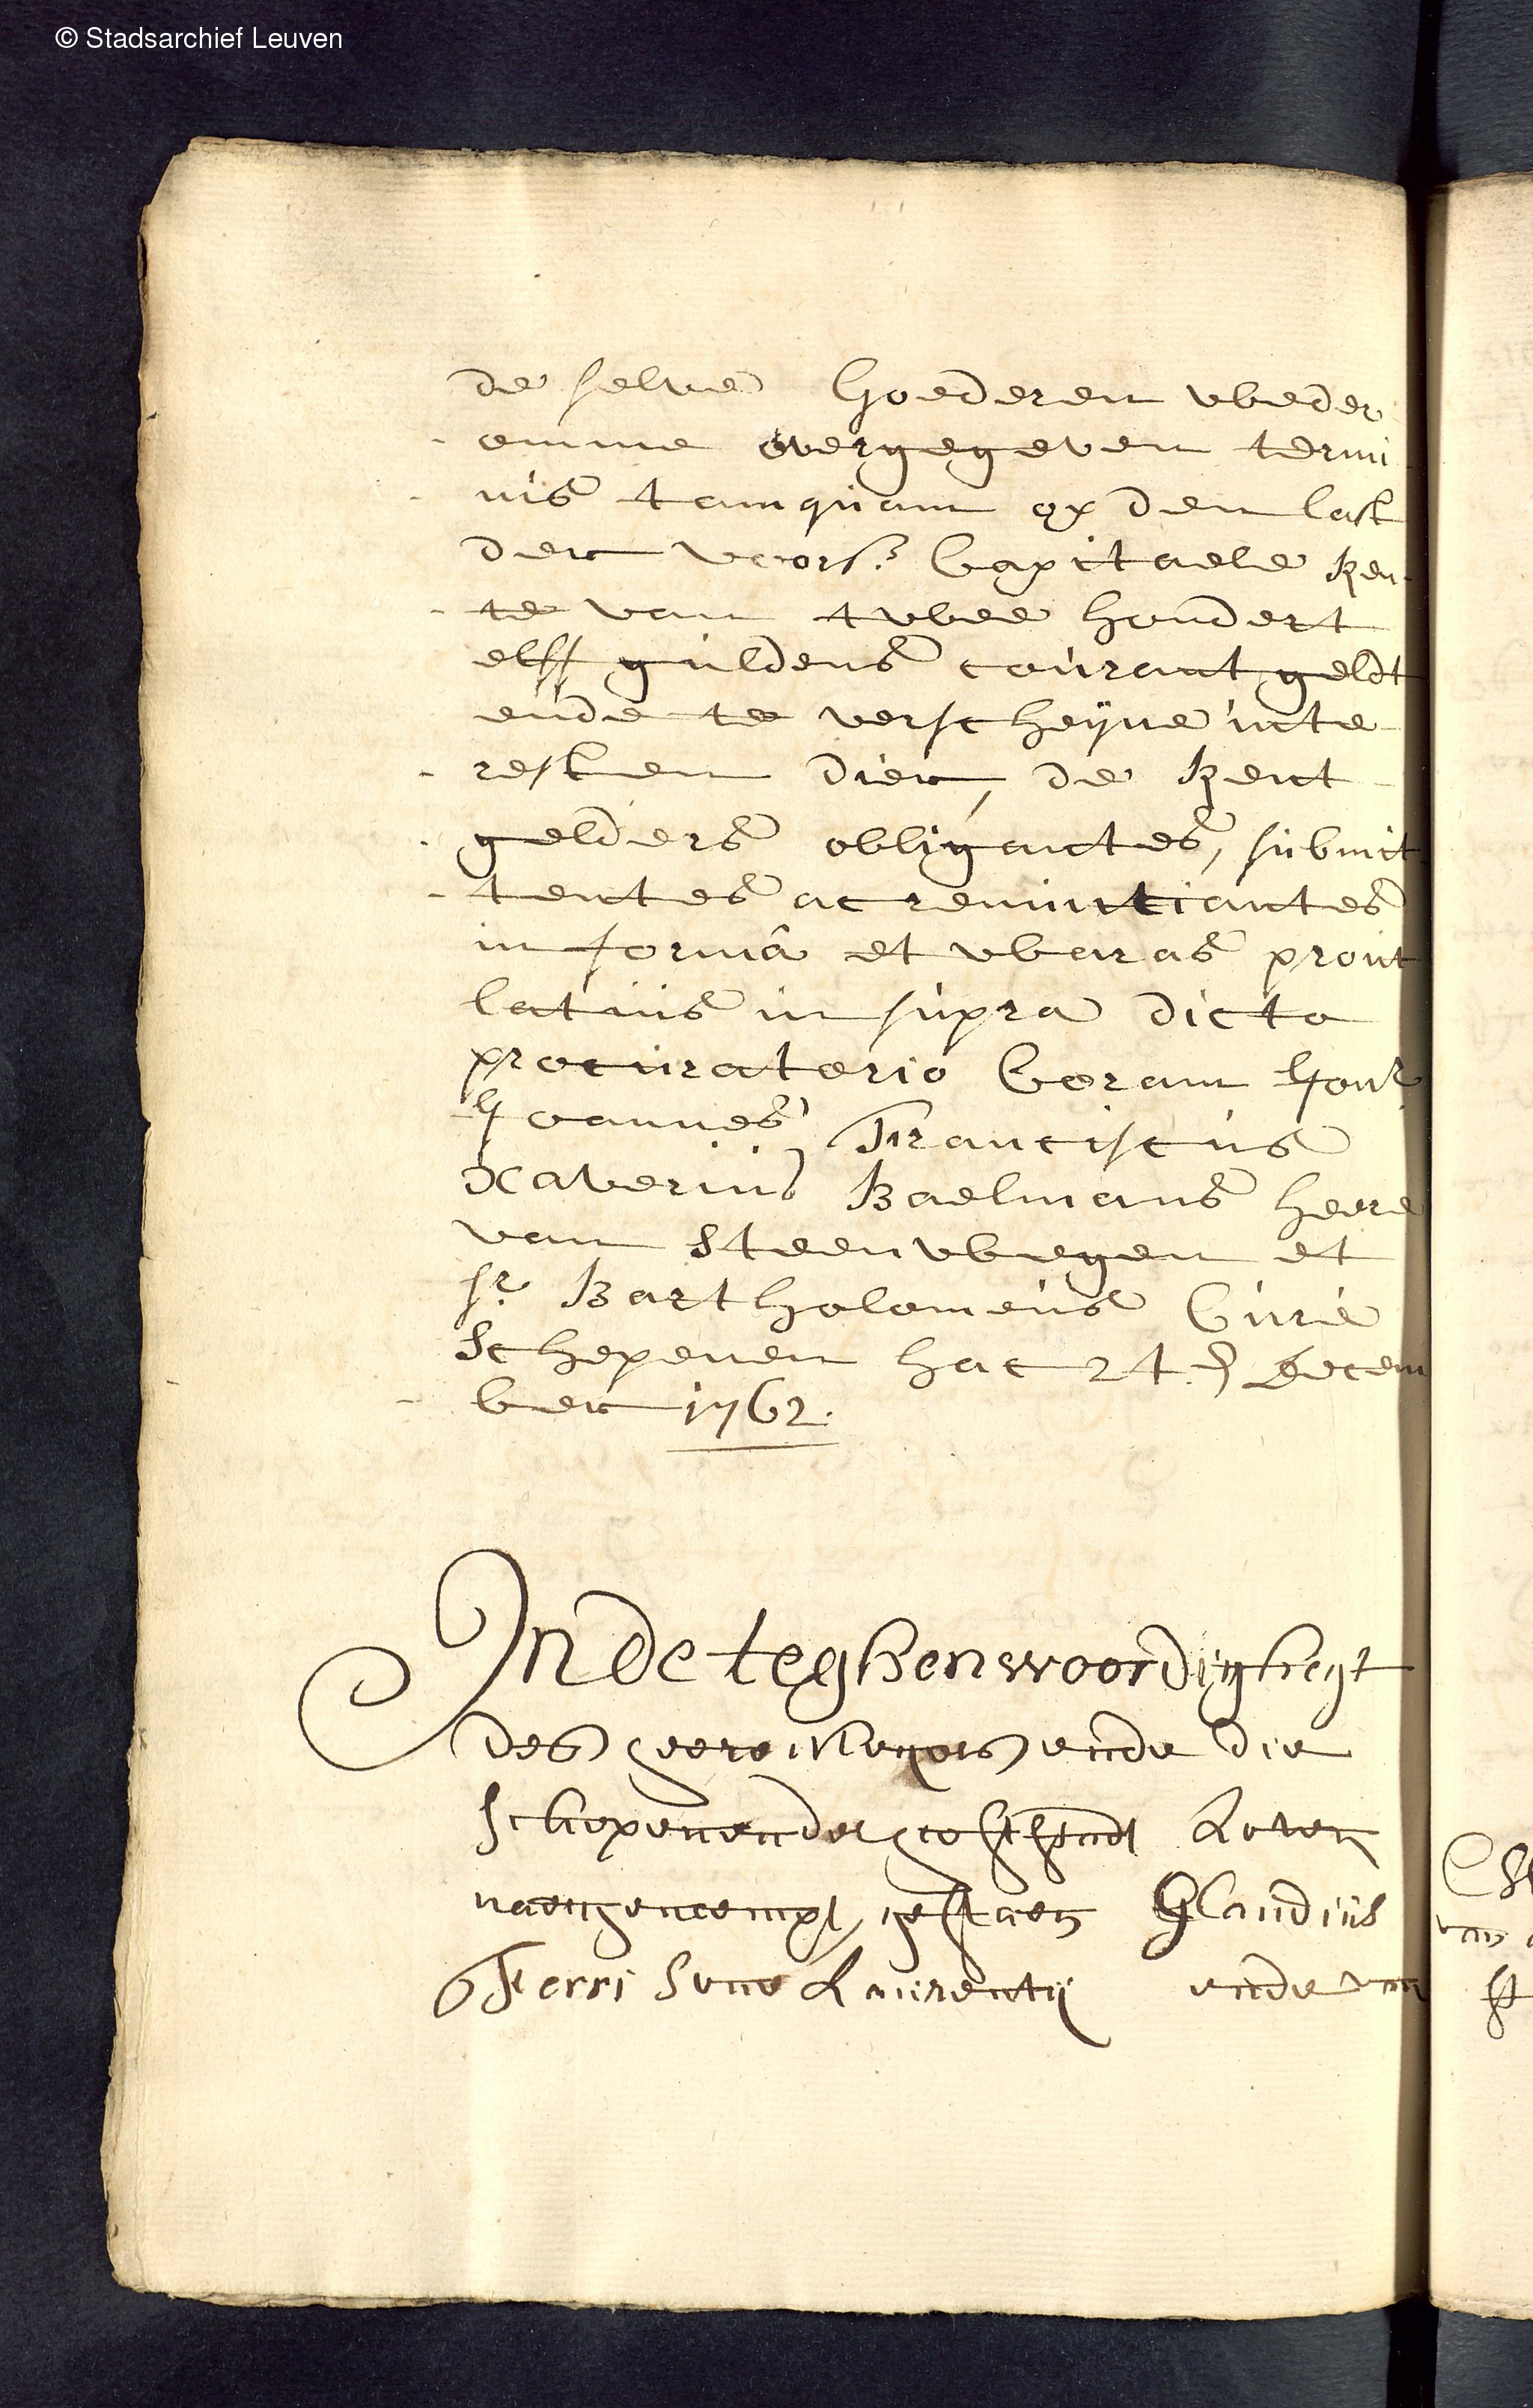 © Stadsarchief Leuven
de selve Goederen wbeder
omme overgegeven termi
nis tamquam op den last
der voors.s Capitaele Ren
te van twbee hondert
elff guldens courant geldt
ende te verscheyne inte
resten dier, de Rent
gelders obligantes, submit
tentes ac renuntiantes
in formâ et wbaras prout
latius in supra dicto
procuratorio Coram Jonr
Joannes Franciscus
Xaverius Baelmans heere
van Steenwbegen et
sr Bartholomeus Curé
Schepenen hac 24 Decem
ber 1762.
In de teghenwoordigheyt
des heere Meyers ende die
schepenen der hooftstadt Loven
naergenoempt, gestaen Glaudius
Ferri sone Laurentij ende van
van